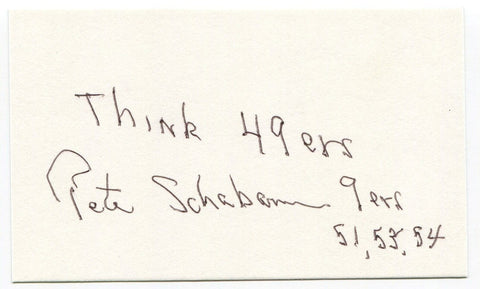 Think 49ers
Pete Schabarum 9ers
51, 53, 54